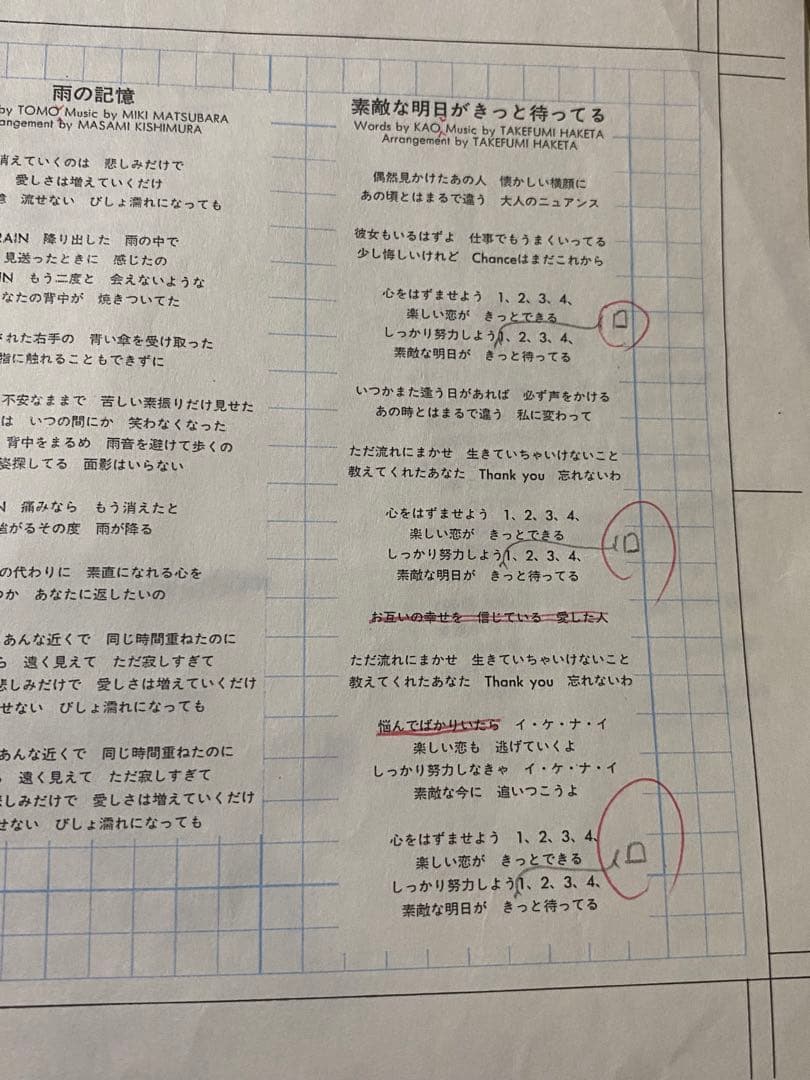 雨の記憶
by TOMO Music by MIKI MATSUBARA
angement by MASAMI KISHIMURA
消えていくのは 悲しみだけで
愛しさは増えていくだけ
流せない びしょ濡れになっても
RAIN 降り出した 雨の中で
見送ったときに 感じたの
もう二度と 会えないような
なたの背中が 焼きついてた
された右手の 青い傘を受け取った
指に触れることもできずに
不安なままで 苦しい素振りだけ見せた
は いつの間にか 笑わなくなった
背中をまるめ 雨音を避けて歩くの
姿探してる 面影はいらない
痛みなら もう消えたと
がるその度 雨が降る
の代わりに 素直になれる心を
つか あなたに返したいの
あんな近くで 同じ時間重ねたのに
ら 遠く見えて ただ寂しすぎて
悲しみだけで 愛しさは増えていくだけ
せない びしょ濡れになっても
あんな近くで 同じ時間重ねたのに
遠く見えて ただ寂しすぎて
悲しみだけで 愛しさは増えていくだけ
せない びしょ濡れになっても
素敵な明日がきっと待ってる
Words by KAO Music by TAKEFUMI HAKETA
Arrangement by TAKEFUMI HAKETA
偶然見かけたあの人 懐かしい横顔に
あの頃とはまるで違う 大人のニュアンス
彼女もいるはずよ 仕事でもうまくいってる
少し悔しいけれど Chanceはまだこれから
心をはずませよう 1、2、3、4、
楽しい恋が きっとできる
しっかり努力しよう1、2、3、4、
素敵な明日が きっと待ってる
いつかまた逢う日があれば 必ず声をかける
あの時とはまるで違う 私に変わって
ただ流れにまかせ 生きていちゃいけないこと
教えてくれたあなた Thank you 忘れないわ
心をはずませよう 1、2、3、4、
楽しい恋が きっとできる
しっかり努力しよう1、2、3、4、
素敵な明日が きっと待ってる
お互いの幸せを 信じている 愛した人
ただ流れにまかせ 生きていちゃいけないこと
教えてくれたあなた Thank you 忘れないわ
悩んでばかりいたら イ・ケ・ナ・イ
楽しい恋も 逃げていくよ
しっかり努力しなきゃ イ・ケ・ナ・イ
素敵な今に 追いつこうよ
心をはずませよう 1、2、3、4、
楽しい恋が きっとできる
しっかり努力しよう1、2、3、4、
素敵な明日が きっと待ってる